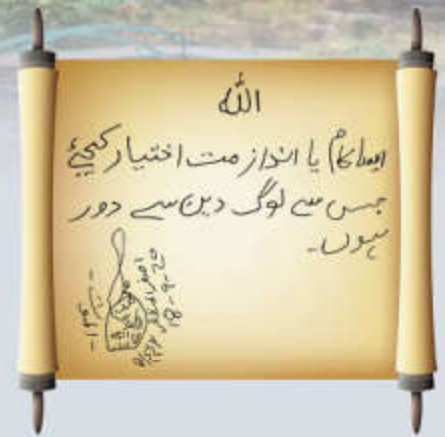 اللہ
ایسا کام یا انداز مت اختیار کیجئے
جس سے لوگ دین سے دور
ہوں۔